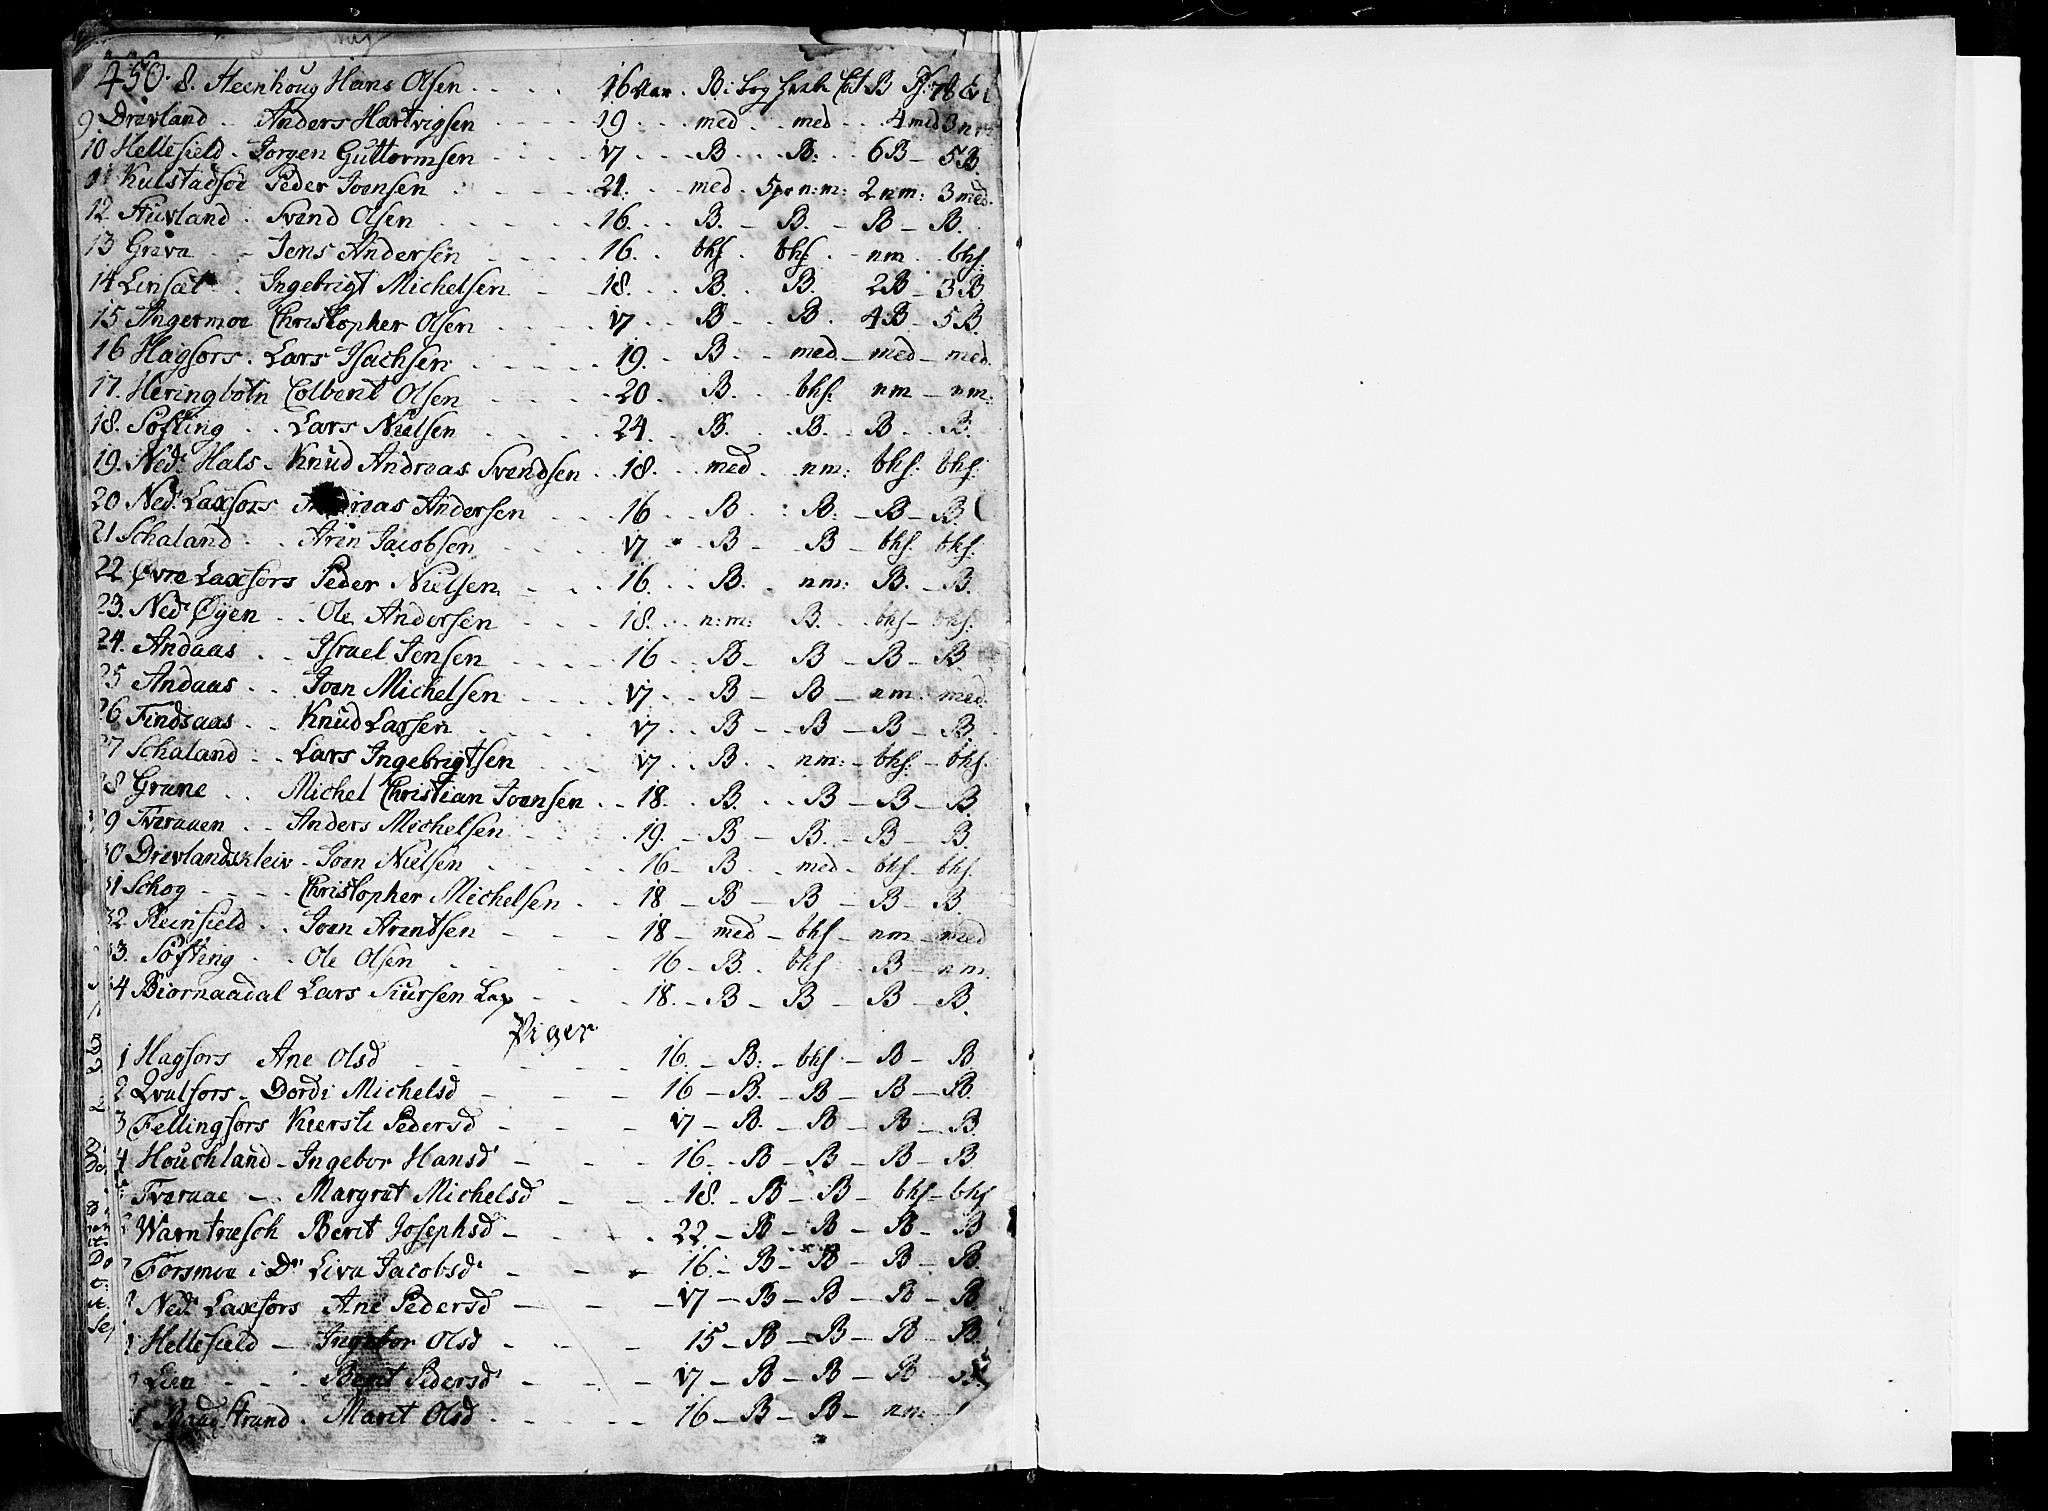 450. 8. Steenhoug Hans Olsen . . . . 16 Aar . B. i bog
9 Drevland . Anders Hartvigsen . . . . 19 . . med . . med . . 4 med 3 nm
10 Hellefield . Jorgen Guttormsen . . . . 17 . . B . . B: . . 6 B – 5 B.
11 Kulstadsøe Peder Joensen . . . . 21. . . med . 5 pr n:m: 2 nm: 3 med.
12 Stuvland . Svend Olsen . . . . 16. . . B. – B. – B – B.
13 Greva . . Jens Andersen . . . . 16. . bhſ . bhſ . . nm . bhſ:
14 Linsæt . . Ingebrigt Michelsen – – 18. . . B. . B. 2 B – 3 B.
15 Angermoe Christopher Olsen . . . . 17 . . B – . B . 4 B – 5 B.
16 Hagfors . Lars Isachsen . . . . 19. . B. . med – med – med.
17. Heringbotn Colbent Olsen . . . . 20 . B. . bhſ: nm – nm:
18. Søfting . . Lars Nielsen . . . . 24 . . B. . B. . B. . B.
19. Ned: Hals . Knud Andreas Svendsen . . 18. . . med . nm: bhſ: bhſ:
20 Ned: Laxfors Andersen . . . 16 . . B . : B: – B – B.
21 Schaland . . Arin Jacobsen . . . . 17 . . B – B – bhſ: bhſ:
22 Øvre Laxfors Peder Nielsen . – . . 16. . B. . nm: B. – B.
23. Ned: Øyen . . Ole Andersen . . . . 18. . . n:m: B. . . bhſ – bhſ:
24. Andaas . . Israel Jensen . . . . 16 . . B – B – B – B.
25 Andaas . . Joen Michelsen . . . . 17. . . B – B – nm . med:
26 Findsaas . . Knud Larsen . . . . 17 . . B – B – B – B.
27 Schaland . . Lars Ingebrigtsen . . . 17 . . B . . nm: – bhſ: – bhſ.
28 Grane . . Michel Christian Joensen . . 18. . B. . . B – B – B
29 Tveraaen . . Anders Michelsen . . . . 19. – B – B. – B – B.
30 Drevlandskleiv – Joen Nielsen . . . . 16 – B . med – bhſ – bhſ.
31 Schog – – – . Christopher Michelsen . . 18 – B – B – B – B.
32 Reinfield . . Joen Arentsen – – – 18 – med – bhſ – nm – med
33. Søfting . . Ole Olsen . – – – 16 – B. . bhſ . B – nm.
34 Biornaadal Lars Siursen Lap – – . 18. – B – B – B – B.
Piger
1 Hagfors Ane Olsd . – – – . 16. – B: – bhſ . – B – B
2 Qvalfors – Dordi Michelsd – – – 16 – B. – B – B – B.
3 Fellingfors Kiersti Pedersd – – – 17 – B. – B – B – B.
4 Houchland – Ingebor Hansd – – – 16 – B – B – B – B.
Tveraae – . Margret Michelsd – – – 18. – B – B – bhſ – bhſ
Warntræsch Berit Josephsd – . . . 22 – B – B – B – B
Forsmoe i D: Liva Jacobsd – – – 16. – B – B – B – B.
Ned: Laxfors Ane Pedersd – – – 17 – B – B – B – B
Hellefield – Ingebor Olsd . . – 15 – B – B – B – B.
Lien – – . Berit Pedersd – . – 17 – B – B – B –
strand . Marit Olsd . . . – – 16 – B – B – nm –